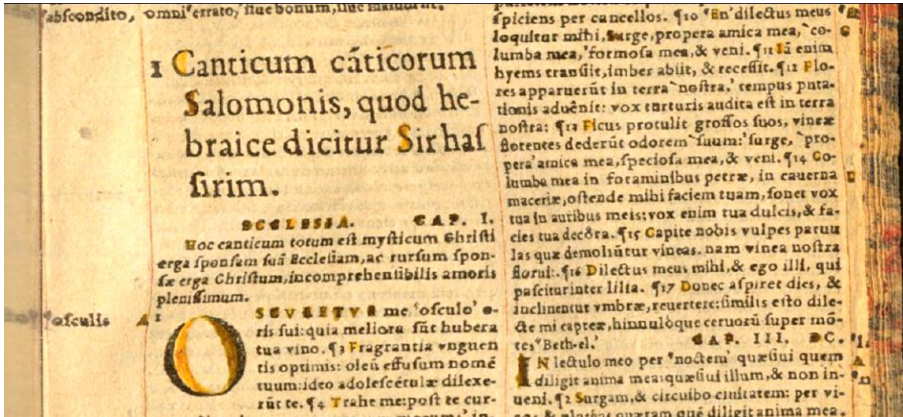 abscondito, omni errato, siue bonum, siue
1 Canticum cãticorum
Salomonis, quod he-
braice dicitur Sir has
sirim.
ECCLESIA. CAP. I.
Hoc canticum totum est mysticum Christi
erga sponsam suã Ecclesiam, ac rursum spon-
sæ erga Christum, incomprehensibilis amoris
plenissimum.
osculis A
1
OSCVLETVR me ʽosculoʼ o-
ris sui: quia meliora sũt hubera
tua vino. ¶3 Fragrantia vnguen
tis optimis: oleũ effusum nomẽ
tuum: ideo adolescẽtulæ dilexe-
rũt te. ¶4 Trahe me: post te cur-
spiciens per cancellos. ¶10 ʽEnʼ dilectus meus
loquitur mihi, Surge, propera amica mea, ʽco-
lumba mea,ʼ formosa mea, & veni. ¶11 Iã enim
hyems transiit, imber abiit, & recessit. ¶12 Flo-
res apparuerũt in terra ʽnostra,ʼ tempus puta-
tionis aduẽnit: vox turturis audita est in terra
nostra: ¶13 Ficus protulit grossos suos, vineæ
florentes dederũt odorem ʽsuum:ʼ surge, ʽpro-
peraʼ amica mea, speciosa mea, & veni. ¶14 Co-
lumba mea in foraminibus petræ, in cauerna
maceriæ, ostende mihi faciem tuam, sonet vox
tua in auribus meis: vox enim tua dulcis, & fa-
cies tua decõra. ¶15 Capite nobis vulpes paruu
las quæ demoliũtur vineas. nam vinea nostra
floruit. ¶16 Dilectus meus mihi, & ego illi, qui
pascitur inter lilia. ¶17 Donec aspiret dies, &
inclinentur vmbræ, reuertere: similis esto dile-
cte mi capreæ, hinnulõque ceruorũ super mõ-
tes ʽBeth-el.ʼ
CAP. III. DC.
IN lectulo meo per ʽnoctemʼ quæsiui quem
diligit anima mea: quæsiui illum, & non in-
ueni. ¶2 Surgam, & circuibo ciuitatem: per vi-
& plateas quæram quẽ diligit anima mea